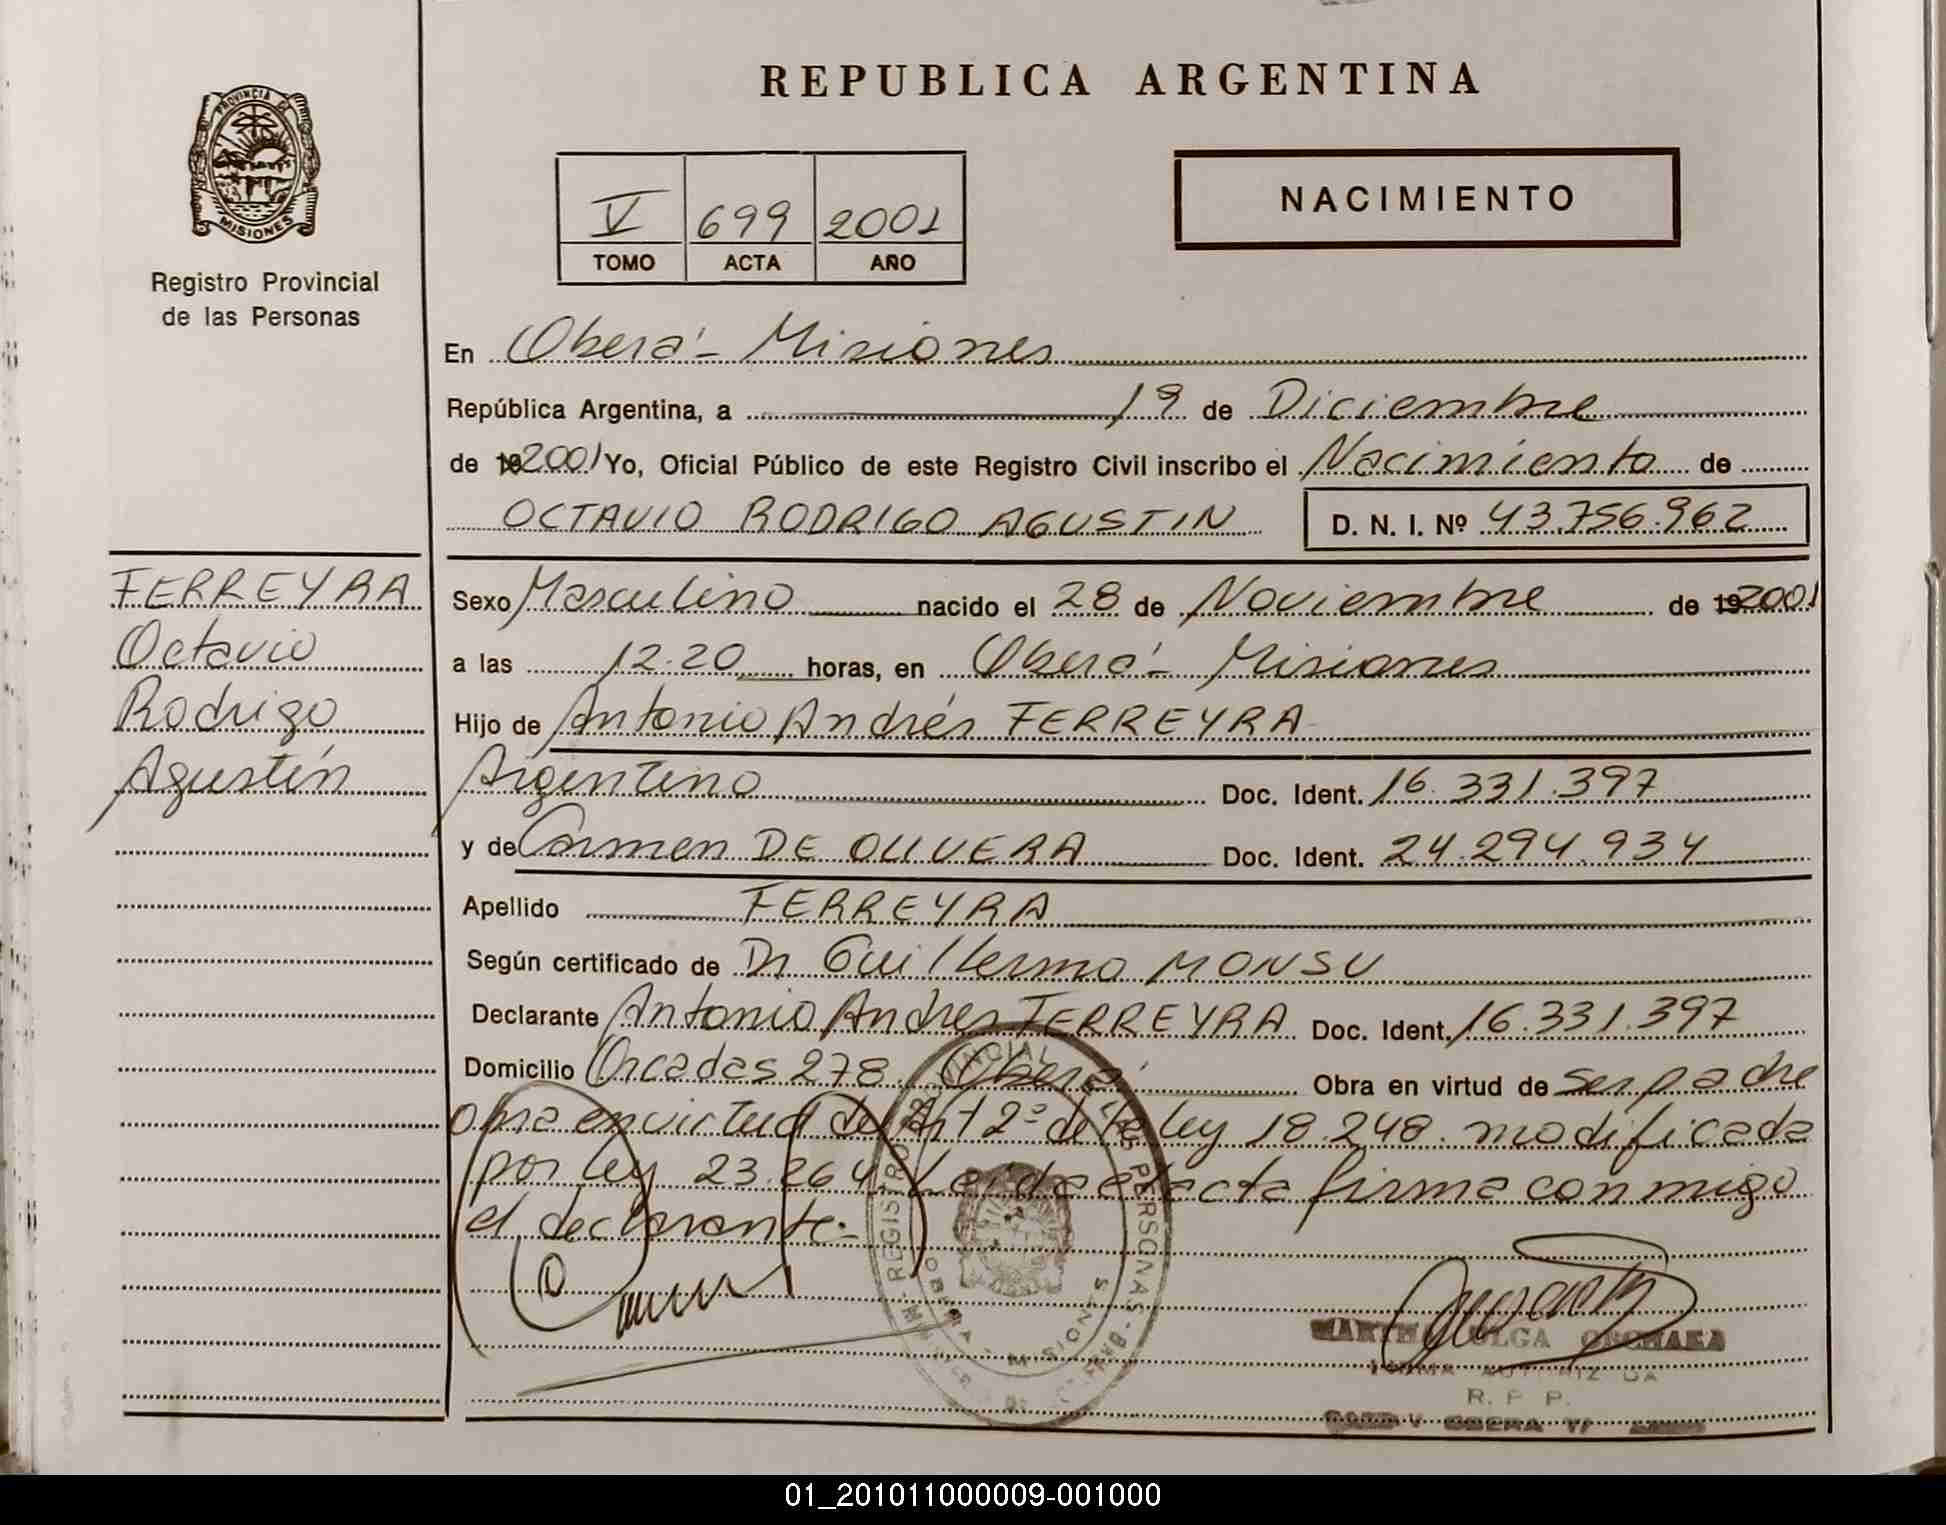 REPUBLICA ARGENTINA
PROVINCIA DE
MISIONES
Registro Provincial
de las Personas
V 699 2001
TOMO ACTA AÑO
NACIMIENTO
En Oberá - Misiones
República Argentina, a 19 de Diciembre
de 19 2001 Yo, Oficial Público de este Registro Civil inscribo el Nacimiento de
OCTAVIO RODRIGO AGUSTIN D. N. I. Nº 43.756.962
FERREYRA
Octavio
Rodrigo
Agustín
Sexo Masculino nacido el 28 de Noviembre de 19 2001
a las 12.20 horas, en Oberá - Misiones
Hijo de Antonio Andrés FERREYRA
Argentino Doc. Ident. 16.331.397
y de Carmen DE OLIVERA Doc. Ident. 24.294.934
Apellido FERREYRA
Según certificado de Dr Guillermo MONSU
Declarante Antonio Andres FERREYRA Doc. Ident. 16.331.397
Domicilio Orcadas 278 Oberá Obra en virtud de ser padre
obra en virtud del Art 2º de la ley 18.248 modificada
por ley 23.264 Leída el acta firma conmigo
el declarante.-
REGISTRO PROVINCIAL DE LAS PERSONAS
OBERA - MISIONES
OLGA
R. P. P.
OBERA
01_201011000009-001000